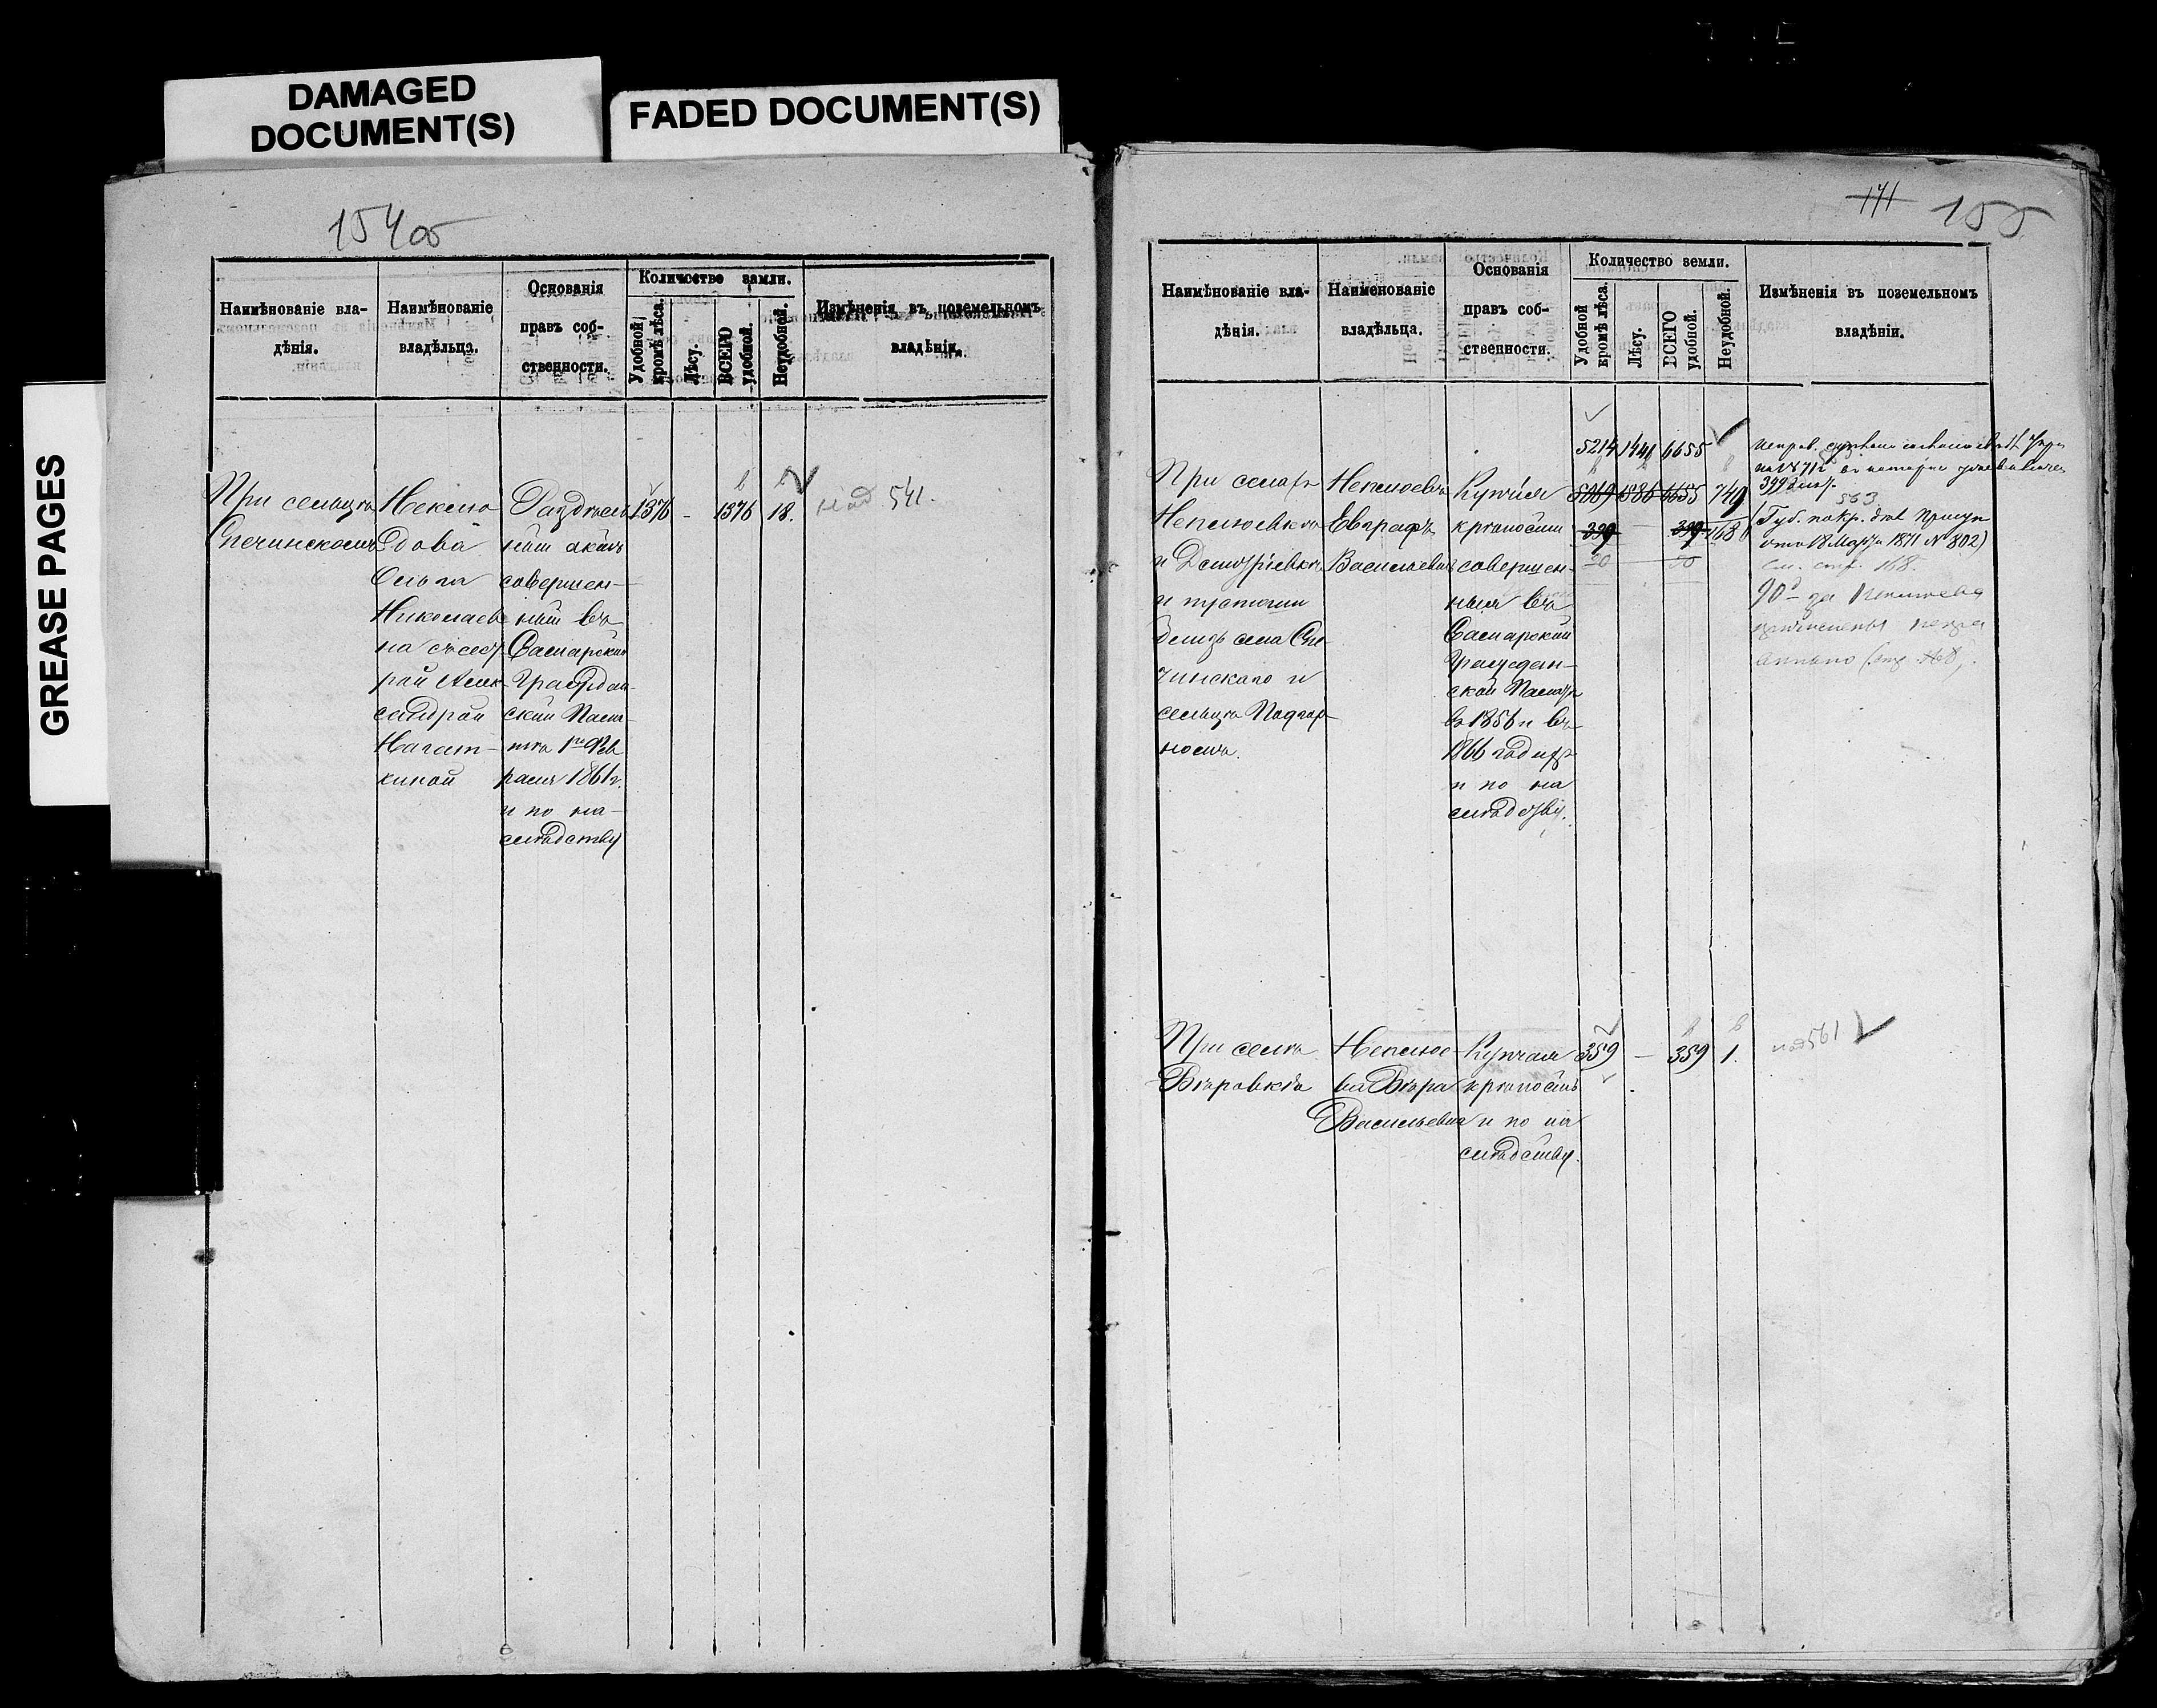 DAMAGED
DOCUMENT(S)
FADED DOCUMENT(S)
GREASE PAGES
154 об
Наимѣнованіе вла-
дѣнія.
Наимѣнованіе
владѣльца.
Основанія
правъ соб-
ственности.
Количество земли.
Удобной
кромѣ лѣса.
Лѣсу.
ВСЕГО
удобной.
Неудобной.
Измѣненія въ поземельномъ
владѣніи.
При сельцѣ
Спечинскомъ
Неклю
Ольга
Николаев
на съ сест
рой Алек
сандрой
Нагат-
киной
Раздѣль
ный актъ
совершен-
ный въ
Самарской
Граждан-
ской Палa-
тѣ 1го Фев
раля 1861 г.
и по на-
слѣдству
1376 - 1376 18.
541.
171 155
Наимѣнованіе вла-
дѣнія.
Наименованіе
владѣльца.
Основанія
правъ соб-
ственности.
Количество земли.
Удобной
кромѣ лѣса.
Лѣсу.
ВСЕГО
удобной.
Неудобной.
Измѣненія въ поземельномъ
владѣніи.
При селахъ
Неплюевкѣ
и Дмитріевкѣ
и противъ
села Спе
чинскаго и
сельца Подгор-
номъ.
Неплюевъ
Евграфъ
Васильевичъ
Купчія
крѣпости
совершен-
ныя въ
Самарской
Граждан-
ской Палатѣ
въ 1856 и въ
1866 годахъ
и по на
слѣдству.
5214 1441 6655
5069 1586 6655 749
399 - 399 768
563
(Губ. по кр. дѣл. Присут
отъ 18 Марта 1871 № 802)
см. стр. 168.
При селѣ
Вѣровкѣ
Неплюе-
ва Вѣра
Васильевна
Купчая
крѣпость
и по на
слѣдству.
359 - 359 1.
561